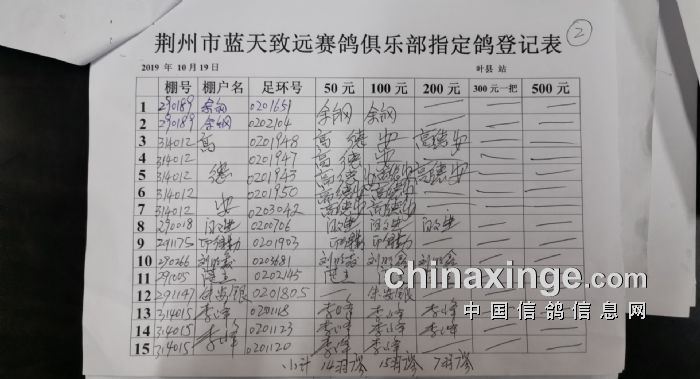 2
荆州市蓝天致远赛鸽俱乐部指定鸽登记表
2019 年 10 月 19 日 叶县 站
棚号 棚户名 足环号 50元 100元 200元 300元一把 500元
1 290189 余钢 0201651 余钢 余钢 — — —
2 290189 余钢 0202104 — — —
3 314012 高 0201948 高德安 高德安 — —
4 314012 0201947 高德安 — — —
5 314012 德 0201943 高德安 高德安 高德安 — —
6 314012 0201950 高德安 高德安 — — —
7 314012 安 0203042 高德安 高德安 — — —
8 290018 0200706 — —
9 291175 0201903 — — —
10 290266 0203681 — —
11 291005 0202145
12 291147 0201805 —
13 314015 李峰 0201118 李峰 李峰 李峰
14 314015 李峰 0201123 李峰 李峰 李峰 — —
15 314015 0201120 李峰 李峰 — — —
小计 14羽谬 15羽谬 7羽谬
chinaxinge.com
中国信鸽信息网